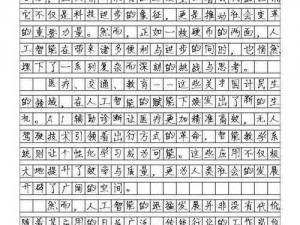 它不仅是科技进步的象征，更是推动社会变革
的重要力量。然而，正如一枚硬币的两面，人
工智能在带来诸多便利与进步的同时，也悄然
埋下了一系列复杂而深刻的挑战与思考。
医疗、交通、教育——这些关乎国计民生
的领域，在人工智能的赋能下焕发出了新的生
机。AI辅助诊断让医疗更加精准高效，无人
驾驶技术引领着出行方式的革命，智能教学系
统则让个性化学习成为可能……这些应用不仅极
大地提升了效率，更为人类社会的发展
开辟了广阔的空间。
然而，人工智能的迅猛发展并非没有代价
随着其应用的日益广泛，传统行业的工作岗位